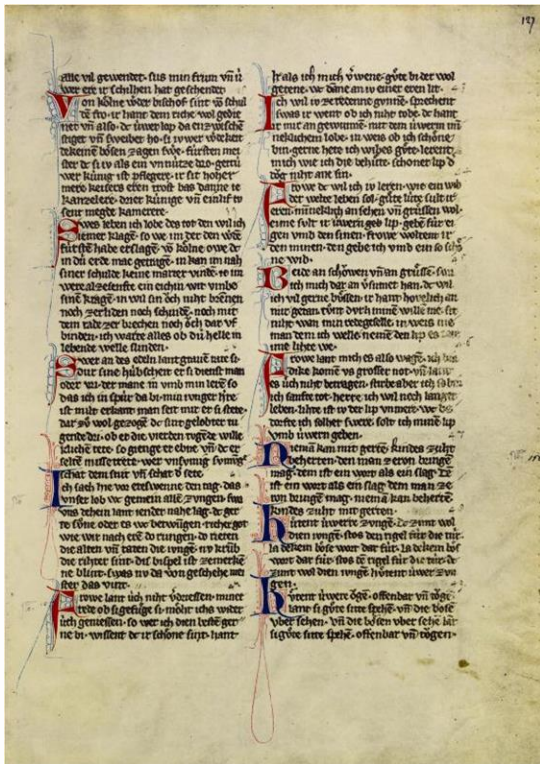 alle vil gewendet · sus min frum vñ ú
wer ere ir schilhen hat geschendet
Von kölne werder bischof sint vō schul
den fro · ir hant dem riche wol gedie
net vñ also · dc úwer lop da enzwischē
stiget vñ sweibet ho · si iwer werdekeit
dekeinen bösen zagen swe · fúrsten mei
ster dc si iv als ein vnnúze dro · getrú
wer kúnig ist pflegere · ir sit hoher
mere keisers eren trost bas danne ie
kanzelere · drier kúnige vñ einlif tv
sent megde kamerere ·
Swes leben ich lobe des tot den wil ich
iemer klagē · so we im der den werdē
fúrstē habe erslagē · vō kölne owe dc
in dú erde mac getragē · in kan im nah
siner schulde keine marter vindē ·
sinē kragē · in wil sin öch niht brēnen
noch zerliden noch schindē · noch mit
dem rade zerbrechen noch öch dar vf
binden · ich warte alles ob dú helle in
lebende welle slinden ·
Swer an des edeln lantgrauē rate si ·
dur sine húbscheit er si dienst man
oder vri · der mane in vmb min lerē so
das ich in spúr da bi · min iunger h're
ist milt erkant man seit mir er si stete ·
dar zů wol gezogē dc sint gelobter tu
gende dri · ob er die vierden tugēde wille
kliche tete · so gienge er ebne vñ dc er
selten missetrete ·
schat dem snit vñ schat d' sete ·
Ich sach hie vor etswenne den tag · das
vnser lob wc gemein allē zvngen · swa
vns dehein lant iender nahe lag · dc ger
te sůne oder es wc betwúngen · richer got
wie wir nach erē do rungen · do rieten
die alten vñ taten die iungē · nv krúb
die rihter sint · dis bispel ist zemerkē
ne blint · swas nv da von geschehe mei
ster das vint ·
Frowe lant úch niht verdriessen · miner
rede ob si gefůge si · möht ichs wider
úch geniessen · so wer ich dien bestē ger
ne bi · wissent dc ir schöne sint · hant
ir als ich mich v'wene · gůte bi der wol
getene · wc danne an iv einer eren lit ·
Ich wil iv ze redenne gvnnē · sprechent
swas ir went ob ich niht tobe · dc hant
ir mir an gewunnē · mit dem úwerm mi
neklichem lobe · in weis ob ich schöne
bin · gerne hete ich wibes gůte · lerent
mich wie ich die behúte · schöner lip d'
tög niht ane sin ·
Frowe dc wil ich iv leren · wie ein wib
der welte leben sol · gůte lúte sult ir
eren · mineklich an sehen vñ grússen wol ·
eime sult ir úwern geb lip · gebē fúr ei
gen vmb den sinen · frowe woltent ir
den minen · den gebe ich vmb ein so schö
ne wib ·
Beide an schöwen vñ an grússē · swa
ich mich dar an v'sumet han · dc wil
ich vil gerne bússen · ir hant hovelich an
mir getan · tůnt dvrh mine wille me · sit
niht wan min redegeselle · in weis nie
man dem ich welle nemē den lip es tet
ime lihte we ·
Frowe lant mich es also wagē · ich bin
dike komē vs grosser not · vñ lant
es úch niht betragen · stirbe aber ich so bin
ich sanfte tot · herre ich wil noch langer
leben · lihte ist iv der lip vnmere · wc be
dorfte ich solher swere · solt ich minē lip
vmb úwern geben ·
Nieman kan mit gertē kindes zuht
beherten · den man zeren bringē
mag · dem ist ein wort als ein slag · dem
ist ein wort als ein slag dem man ze
ren bringē mag · niemā kan behertē
kindes zuht mit gerten ·
Hútent úwerre zvngē · dc zimt wol
dien iungē · stos den rigel fúr die túr ·
la dekein böse wort dar fúr · la dekein böse
wort dar fúr · stos dē rigel fúr die túr · dc
zimt wol dien iungē hútent úwer zvn
gen ·
Hútent úwere ögē · offenbar vñ tögē
lane si gůte sitte spehē · vñ die bösē
vber sehen · vñ die bösen vber sehē lat
si gůte sitte spehē · offenbar vñ tögen ·